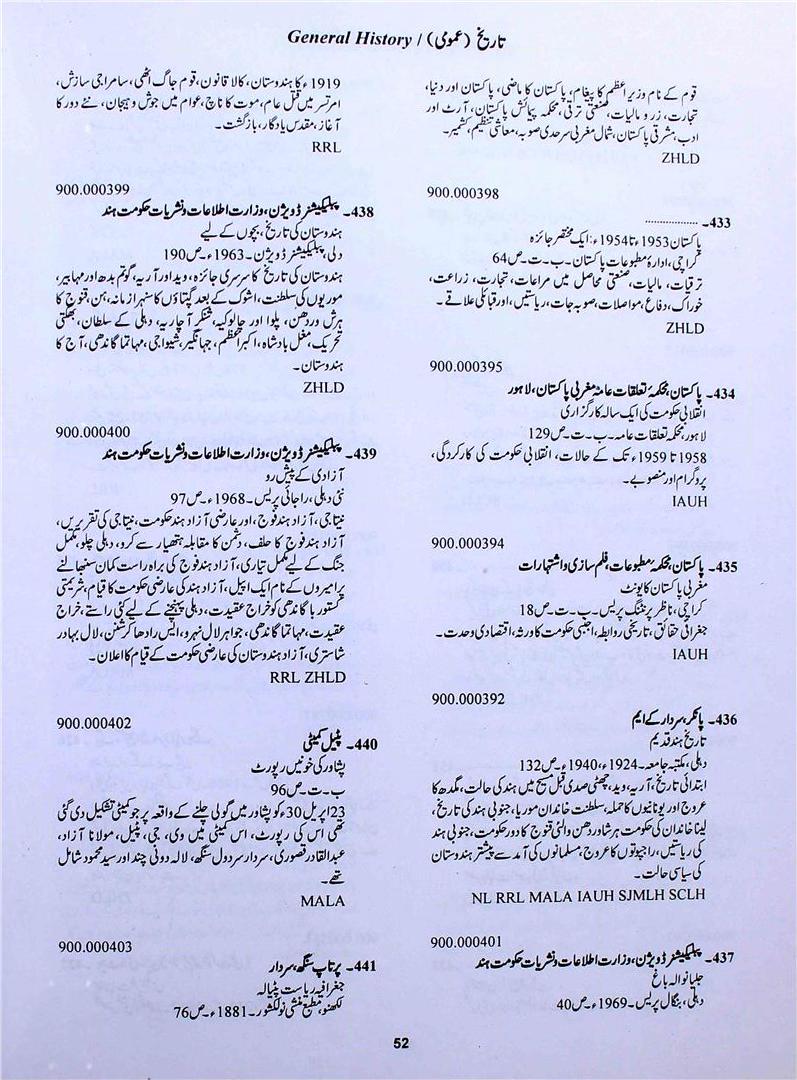 General History / تاریخ (عمومی)
قوم کے نام وزیر اعظم کا پیغام، پاکستان کا ماضی، پاکستان اور دنیا،
تجارت، زر و مالیات، صنعتی ترقی، محکمہ پیمائش پاکستان، آرٹ اور
ادب، مشرقی پاکستان، شمال مغربی سرحدی صوبہ، معاشی تنظیم، کشمیر۔
ZHLD
900.000398
433۔ ..................
پاکستان 1953ء تا 1954ء: ایک مختصر جائزہ
کراچی، ادارۂ مطبوعات پاکستان۔ ب۔ت۔ ص64
ترقیات، مالیات، صنعتی محاصل میں مراعات، تجارت، زراعت،
خوراک، دفاع، مواصلات، صوبہ جات، ریاستیں، اور قبائلی علاقے۔
ZHLD
900.000395
434۔ پاکستان، محکمۂ تعلقات عامہ مغربی پاکستان، لاہور
انقلابی حکومت کی ایک سالہ کارگزاری
لاہور، محکمہ تعلقات عامہ۔ ب۔ت۔ ص129
1958 تا 1959ء تک کے حالات، انقلابی حکومت کی کارکردگی،
پروگرام اور منصوبے۔
IAUH
900.000394
435۔ پاکستان، محکمۂ مطبوعات، فلم سازی و اشتہارات
مغربی پاکستان کا یونٹ
کراچی، ناظر پرنٹنگ پریس۔ ب۔ت۔ ص18
جغرافی حقائق، تاریخی روابط، اجنبی حکومت کا ورثہ، اقتصادی وحدت۔
IAUH
900.000392
436۔ پانکر، سردار کے ایم
تاریخ ہند قدیم
دہلی، مکتبہ جامعہ۔ 1924ء، 1940ء۔ ص132
ابتدائی تاریخ، آریہ، وید، چھٹی صدی قبل مسیح میں ہند کی حالت، مگدھ کا
عروج اور یونانیوں کا حملہ، سلطنت خاندان موریا، جنوبی ہند کی تاریخ،
گپتا خاندان کی حکومت ہرشا وردھن والئی قنوج کا دور حکومت، جنوبی ہند
کی ریاستیں، راجپوتوں کا عروج، مسلمانوں کی آمد سے پیشتر ہندوستان
کی سیاسی حالت۔
NL RRL MALA IAUH SJMLH SCLH
900.000401
437۔ پبلیکیشنز ڈویژن، وزارت اطلاعات و نشریات حکومت ہند
جلیانوالہ باغ
دہلی، بنگال پریس۔ 1969ء۔ ص40
1919ء کا ہندوستان، کالا قانون، قوم جاگ اٹھی، سامراجی سازش،
امرتسر میں قتل عام، موت کا ناچ، عوام میں جوش و ہیجان، نئے دور کا
آغاز، مقدس یادگار، بازگشت۔
RRL
900.000399
438۔ پبلیکیشنز ڈویژن، وزارت اطلاعات و نشریات حکومت ہند
ہندوستان کی تاریخ، بچوں کے لیے
دلی پبلیکیشنز ڈویژن۔ 1963ء۔ ص190
ہندوستان کی تاریخ کا سرسری جائزہ، وید اور آریہ، گوتم بدھ اور مہابیر،
موریوں کی سلطنت، اشوک کے بعد گپتاؤں کا سنہرا زمانہ، ہن، قنوج کا
ہرش وردھن، پلوا اور چالوکیہ، شنکر آچاریہ، دہلی کے سلطان، بھکتی
تحریک، مغل بادشاہ، اکبر اعظم، جہانگیر، شیواجی، مہاتما گاندھی، آج کا
ہندوستان۔
ZHLD
900.000400
439۔ پبلیکیشنز ڈویژن، وزارت اطلاعات و نشریات حکومت ہند
آزادی کے پیش رو
نئی دہلی، راجائی پریس۔ 1968ء۔ ص97
نیتاجی، آزاد ہند فوج، اور عارضی آزاد ہند حکومت، نیتاجی کی تقریریں،
آزاد ہند فوج کا حلف، دشمن کا مقابلہ ہتھیار سے کرو، دہلی چلو، مکمل
جنگ کے لیے مکمل تیاری، آزاد ہند فوج کی براہ راست کمان سنبھالنے
پر امیروں کے نام ایک اپیل، آزاد ہند کی عارضی حکومت کا قیام، شریمتی
کستوربا گاندھی کو خراج عقیدت، دہلی پہنچنے کے لیے کئی راستے، خراج
عقیدت، مہاتما گاندھی، جواہر لال نہرو، ایس رادھا کرشنن، لال بہادر
شاستری، آزاد ہندوستان کی عارضی حکومت کے قیام کا اعلان۔
RRL ZHLD
900.000402
440۔ پٹیل کمیٹی
پشاور کی خونیں رپورٹ
ب۔ت۔ ص96
23اپریل 30ء کو پشاور میں گولی چلنے کے واقعہ پر جو کمیٹی تشکیل دی گئی
تھی اس کی رپورٹ، اس کمیٹی میں وی، جی، پٹیل، مولانا آزاد،
عبدالقادر قصوری، سردار سردول سنگھ، لالہ دونی چند اور سید محمود شامل
تھے۔
MALA
900.000403
441۔ پرتاپ سنگھ، سردار
جغرافیہ ریاست پٹیالہ
لکھنو، مطبع منشی نولکشور۔ 1881ء۔ ص76
52